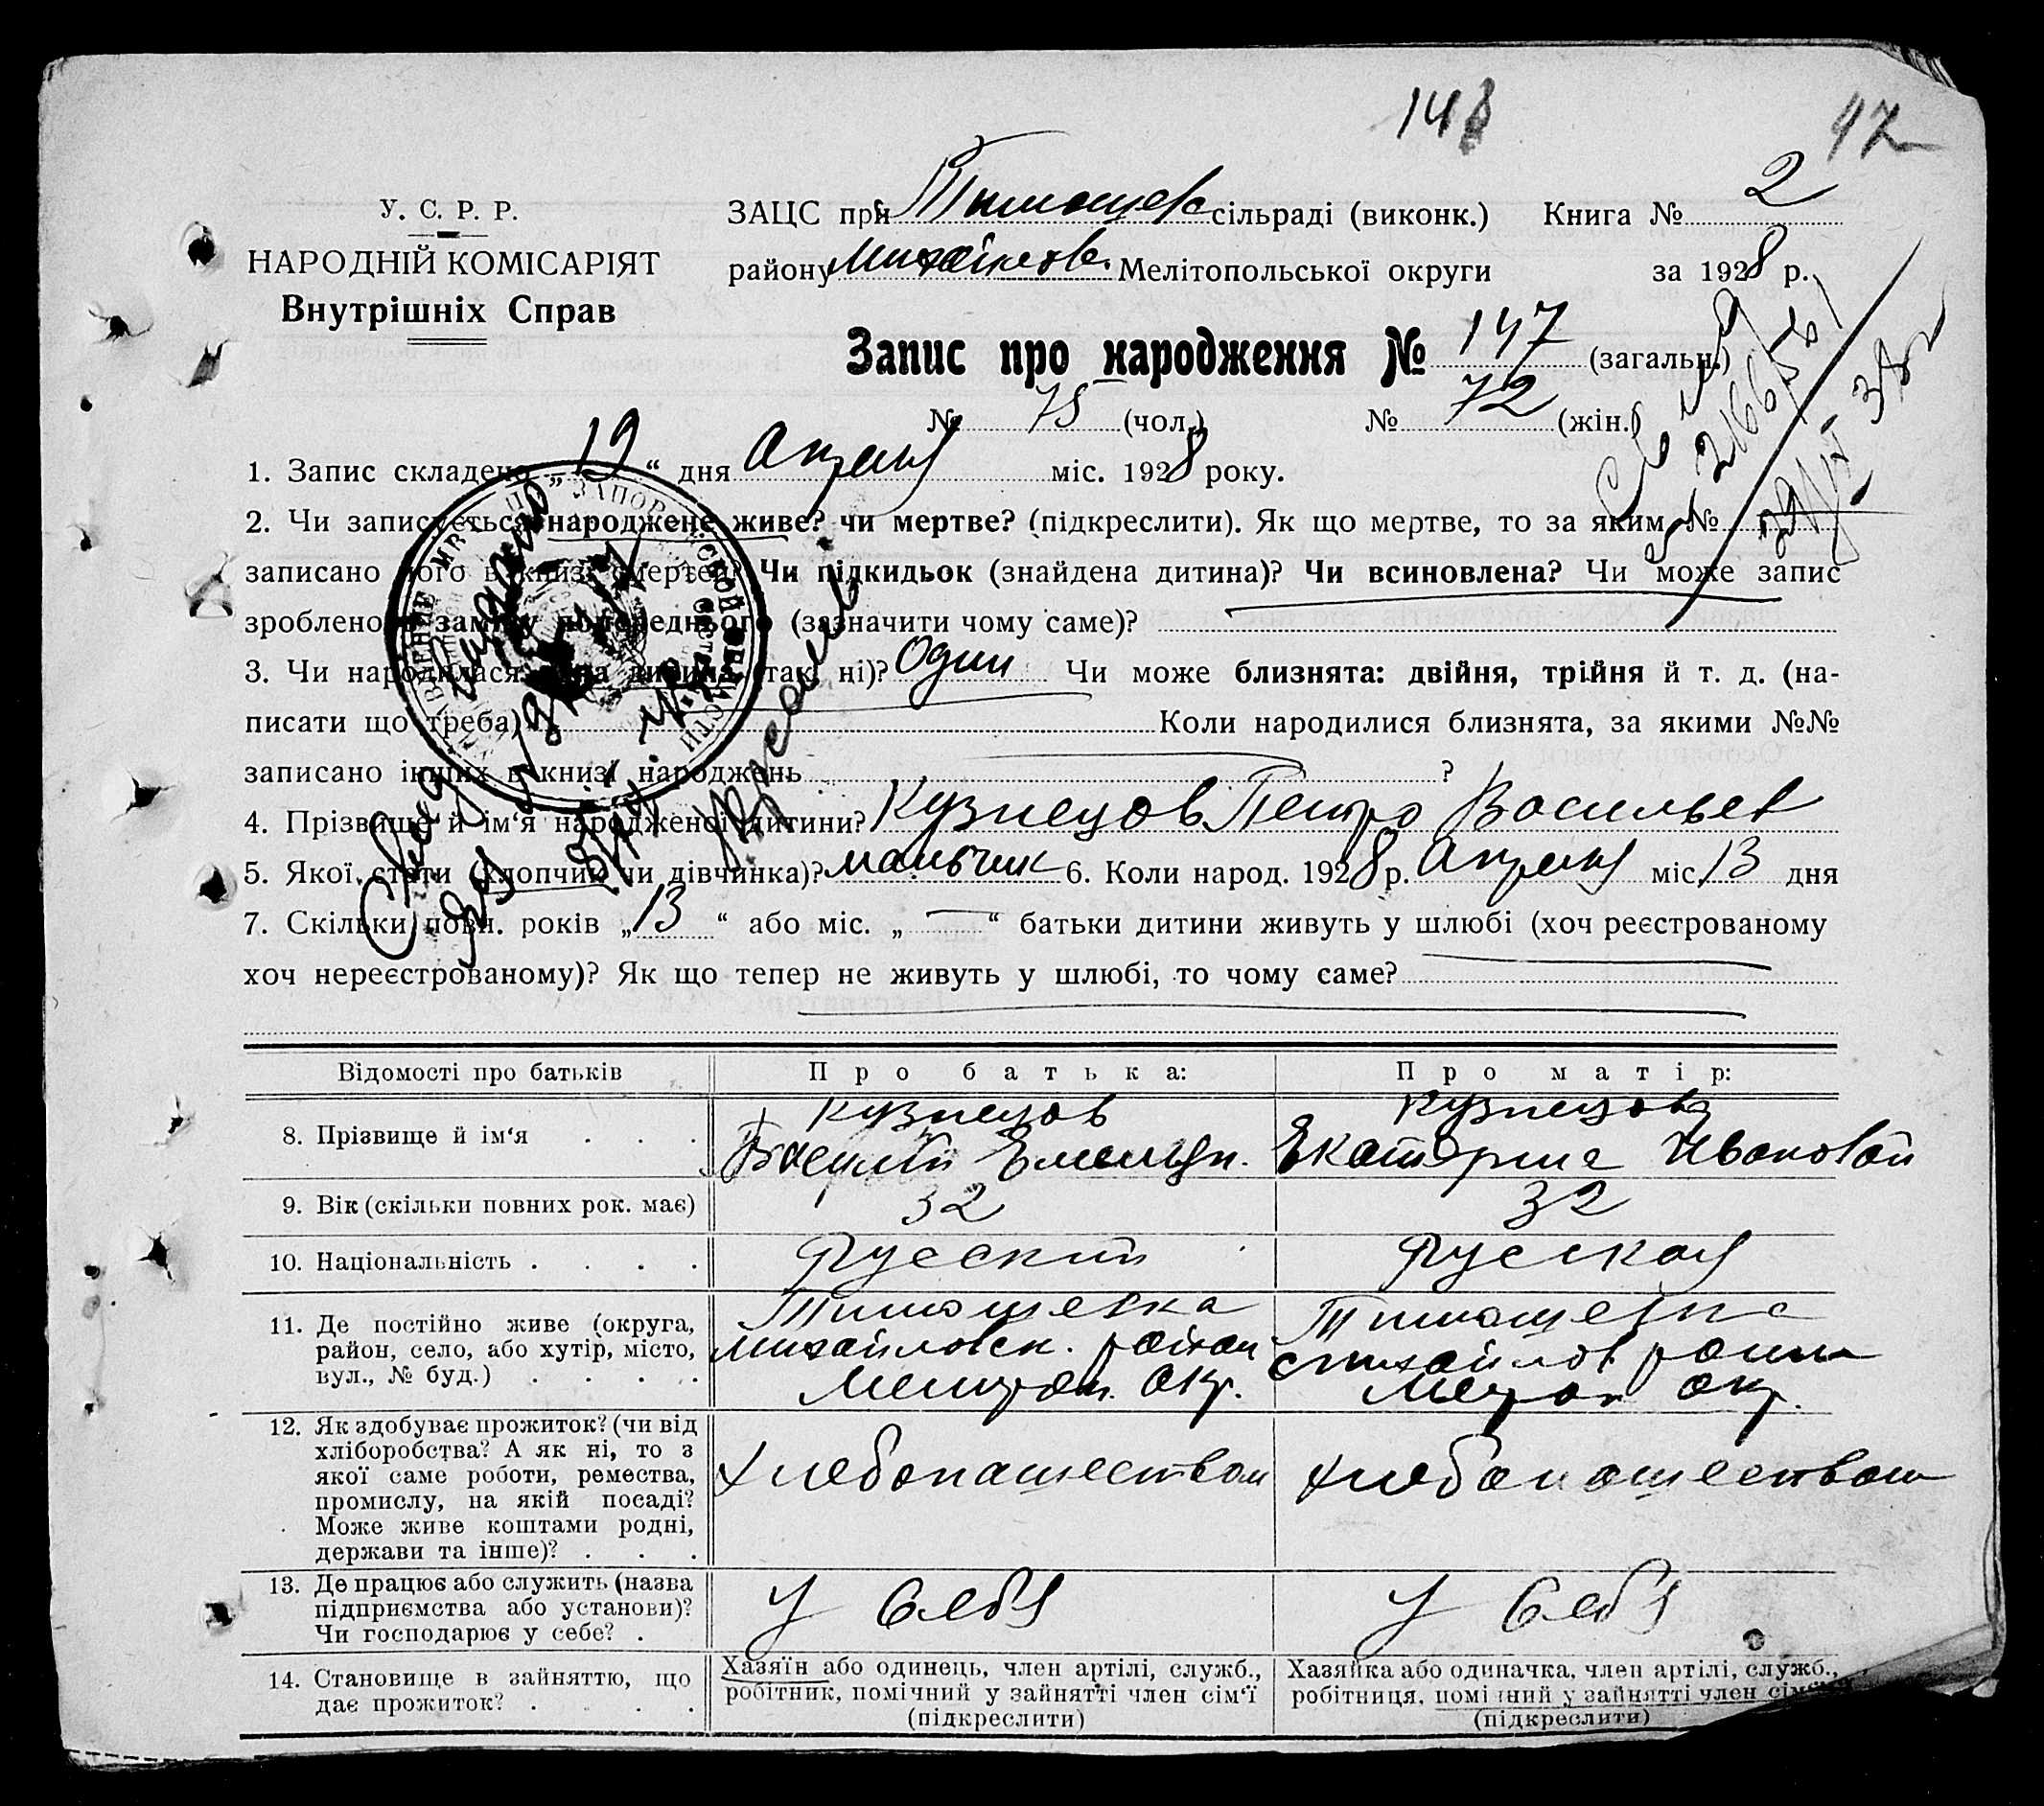 148
97
У. С. Р. Р.
НАРОДНІЙ КОМІСАРІЯТ
Внутрішніх Справ
ЗАЦС при Тимошев сільраді (виконк.) Книга № 2
району Михайлов. Мелітопольської округи за 1928 р.
Запис про народження № 147 (загальн.)
№ 75 (чол.) № 72 (жін.)
1. Запис складено „19“ дня Апреля міс. 1928 року.
2. Чи записується народжене живе? чи мертве? (підкреслити). Як що мертве, то за яким №
записано його в книзі смертей? Чи підкидьок (знайдена дитина)? Чи всиновлена? Чи може запис
зроблено в заміну попереднього (зазначити чому саме)?
3. Чи народилася одна дитина (так, ні)? Один Чи може близнята: двійня, трійня й т. д. (на-
писати що треба) Коли народилися близнята, за якими №№
записано інших в книзі народжень ?
4. Прізвище й ім‘я народженої дитини? Кузнецов Петро Васильев
5. Якої стати (хлопчик чи дівчинка)? мальчик 6. Коли народ. 1928 р. Апреля міс. 13 дня
7. Скільки повн. років „13“ або міс. „—“ батьки дитини живуть у шлюбі (хоч реєстрованому
хоч нереєстрованому)? Як що тепер не живуть у шлюбі, то чому саме?
Відомості про батьків Про батька: Про матір:
8. Прізвище й ім‘я . . . Кузнецов Кузнецова
Василий Емельян. Екатерина Ивановой
9. Вік (скільки повних рок. має) 32 32
10. Національність . . . . Русский Руская
11. Де постійно живе (округа, район, село, або хутір, місто, вул., № буд.) . . . .
Тимошевка
Михайловск. район
Мелитоп. Окр.
Тимошевка
Михайлов район
окр.
12. Як здобуває прожиток? (чи від хліборобства? А як ні, то з якої саме роботи, ремества, промислу, на якій посаді? Може живе коштами родні, держави та інше)? . . .
Хлебопашеством хлебопашеством
13. Де працює або служить (назва підприємства або установи)? Чи господарює у себе? .
У себя У себя
14. Становище в зайняттю, що дає прожиток? . . . .
Хазяїн або одинець, член артілі, служб., робітник, помічний у зайнятті член сім‘ї (підкреслити)
Хазяйка або одиначка, член артілі, служб., робітниця, помічний у зайнятті член сім‘ї (підкреслити)